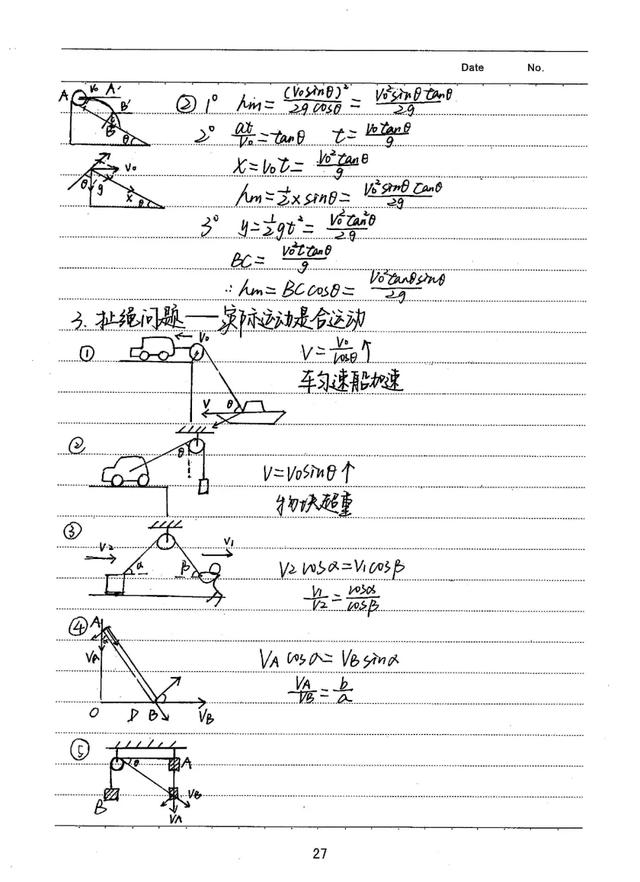 Date No.
A V₀ A' B' B θ
② 1° hm = (V₀sinθ)²/2gcosθ = V₀²sinθtanθ/2g
2° at/V₀ = tanθ t = V₀tanθ/g
V₀ θ g x θ
x = V₀t = V₀²tanθ/g
hm = 1/2 x sinθ = V₀²sinθtanθ/2g
3° y = 1/2 gt² = V₀²tan²θ/2g
BC = V₀²tanθ/g
∴ hm = BCcosθ = V₀²tanθsinθ/2g
3. 扯绳问题——实际运动是合运动
① V₀ V = V₀/cosθ ↑
车匀速船加速
V θ
② θ V = V₀sinθ ↑
物块超重
③ V₂ V₁ α β
V₂cosα = V₁cosβ
V₁/V₂ = cosα/cosβ
④ A VA O D B VB
VA cosα = VB sinα
VA/VB = b/a
⑤ θ A
B VB
VA
27